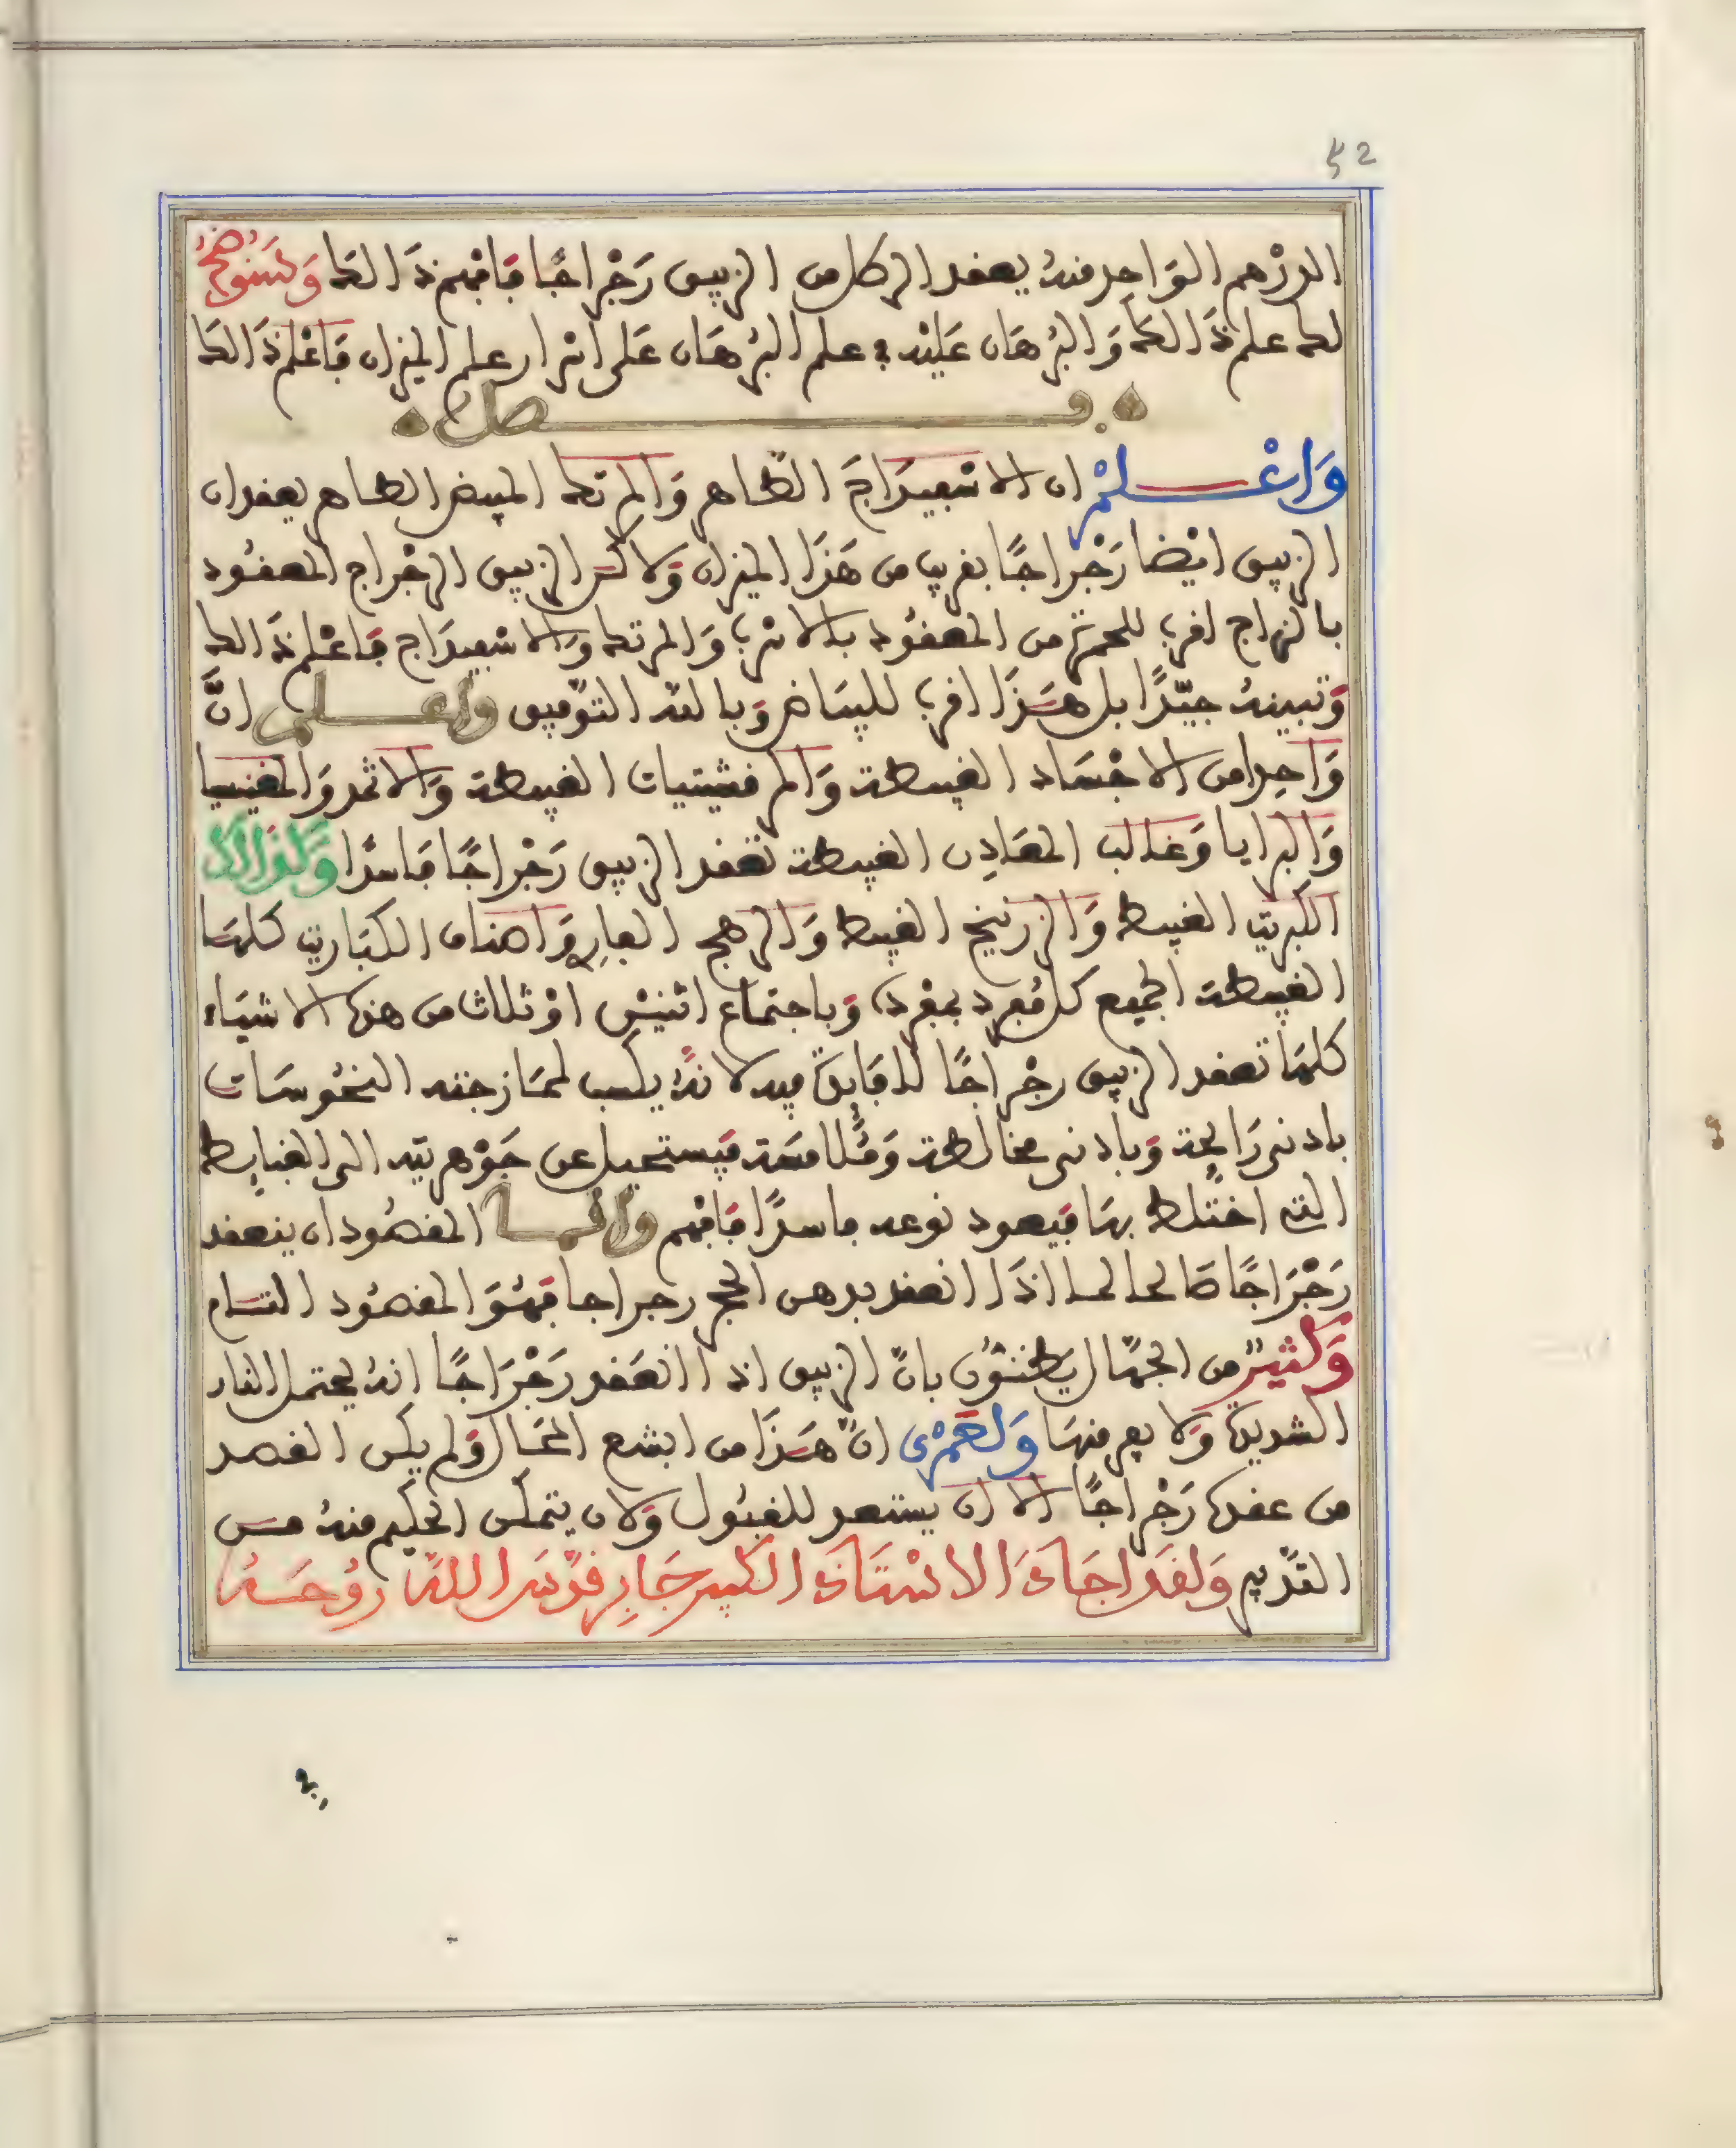 52
الدرْهم الوَاحد منهُ يعقد الرطل من الزيبق رَجْراجًا فَافهم ذَالك وَسَنوضحُ
لك علم ذَالكَ وَالبُرهَان عَليْه في علم البُرهَان عَلى اسْرار علم الميزان فَاعْلم ذَالك
فصل
وَاعْلمْ ان الاسْفيدَاجَ الطاهر وَالمرتك المبيض الطاهر يعقدان
الزيبق ايْضا رَجْراجًا بقريب من هَذَا الميزان وَلاكن الزيبق الرجْراج المعقُود
بالزاج اقرب للحمرَة من المعقُود بالاسْرب وَالمرتك وَالاسْفيدَاج فَاعْلم ذَالك
وَتبينهُ جيّدًا بل هَذَا اقرب للبيَاض وَبالله التوْفيق واعلم انَّ
وَاحدا من الاجْسَاد الغبيطة وَالمرقشيتيات الغبيطة وَالاثمد وَالمغنيسيا
وَالبرايا وَغالب المعَادِن الغبيطة تعقد الزيبق رَجْراجًا فَاسدًا وَكذالك
الكبريت الغبيط وَالزرنيخ الغبيط وَالرهج الفار وَاصناف الكبَاريت كلهَا
الغبيطة الجميع كل مُفرد بمفرده وَباجتماع اثنيْن اوْ ثلاث من هذه الاشيَاء
كلهَا تعقد الزيبق رجْراجًا لا فَايدَة فيه لانهُ يكسب لممَازجته النحُوسَات
بادنى رَايحة وَبادنى مخالطة وَمُلامسَة فيَستحيل عن جَوْهريته الى الغبايط
التي اختلط بهَا فيَعود نوعه فاسدًا فَافهم وانما المقصُود ان ينعقد
رَجْرَاجًا صَالحا لما اذَا انعقد بدهن الحجر رجراجا فهُوَ المقصُود التام
وَكثيرٌ من الجهّال يَظنُّون بانّ الزيبق اذا انعَقد رَجْرَاجًا انهُ يحتمل النار
الشديدة وَلا يفر منهَا وَلعَمْرى انّ هَذَا من ابشع المحَال وَلم يكن القصد
من عقده رَجْراجًا الا ان يستعد للقبُول وَلان يتمكن الحكيم منهُ حسن
التدْبير وَلقَد اجَادَ الاسْتَاذ الكبير جَابِر قدّسَ اللهُ رُوحَهُ